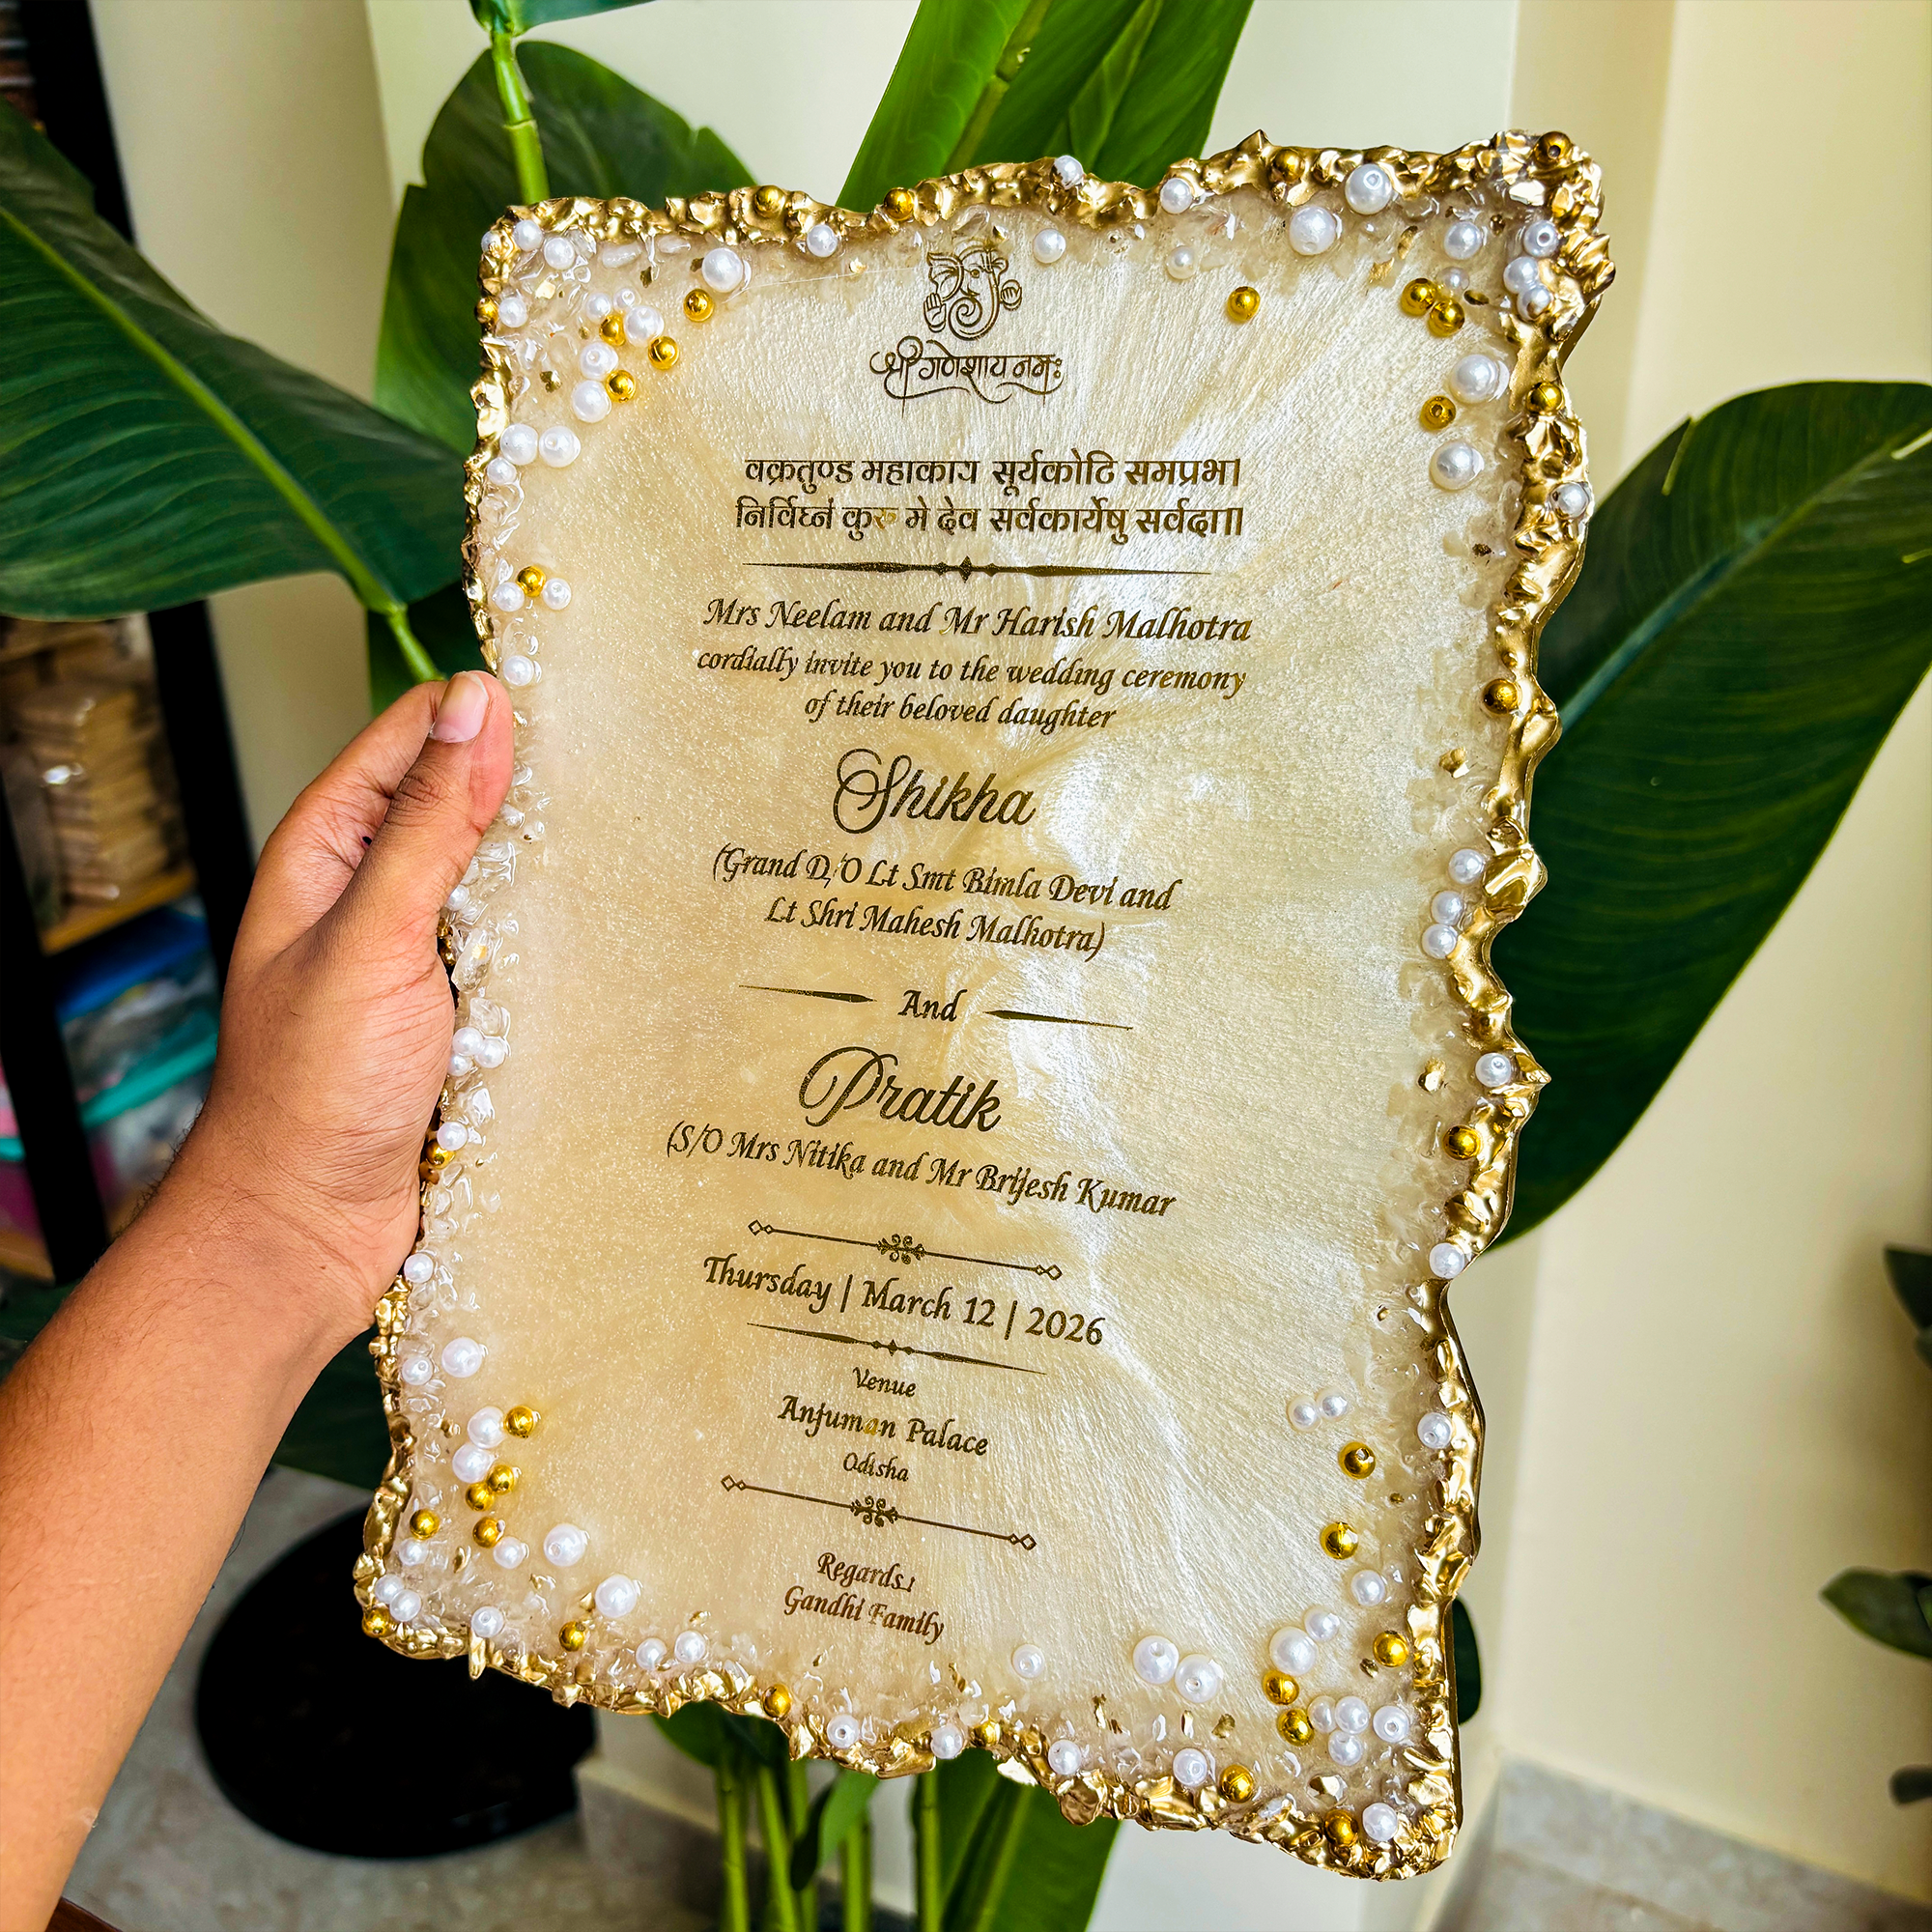 श्री गणेशाय नमः
वक्रतुण्ड महाकाय सूर्यकोटि समप्रभ।
निर्विघ्नं कुरु मे देव सर्वकार्येषु सर्वदा॥
Mrs Neelam and Mr Harish Malhotra
cordially invite you to the wedding ceremony
of their beloved daughter
Shikha
(Grand D/O Lt Smt Bimla Devi and
Lt Shri Mahesh Malhotra)
And
Pratik
(S/O Mrs Nitika and Mr Brijesh Kumar
Thursday | March 12 | 2026
Venue
Anjuman Palace
Odisha
Regards:
Gandhi Family